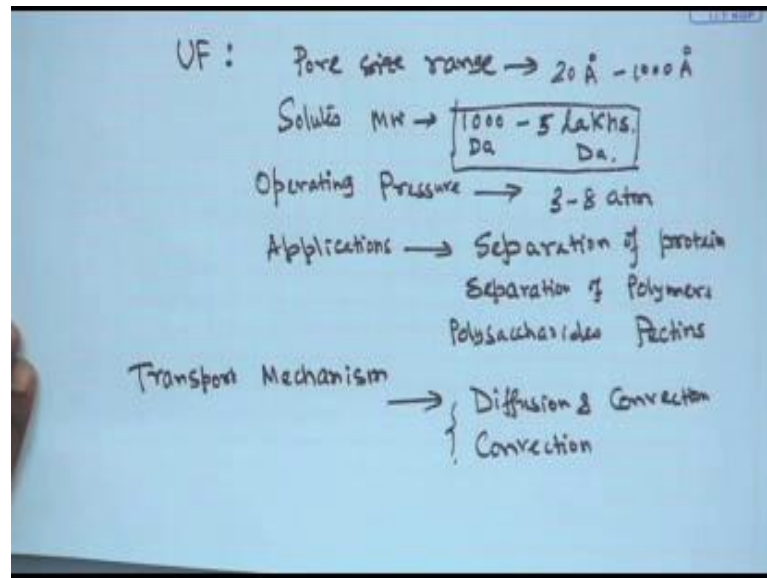 UF : Pore size range → 20 Å - 1000 Å
Solutes MW → 1000 - 5 Lakhs.
Da Da.
Operating Pressure → 3-8 atm
Applications → Separation of protein
Separation of Polymers
Polysaccharides Pectins
Transport Mechanism
→ { Diffusion & Convection
Convection